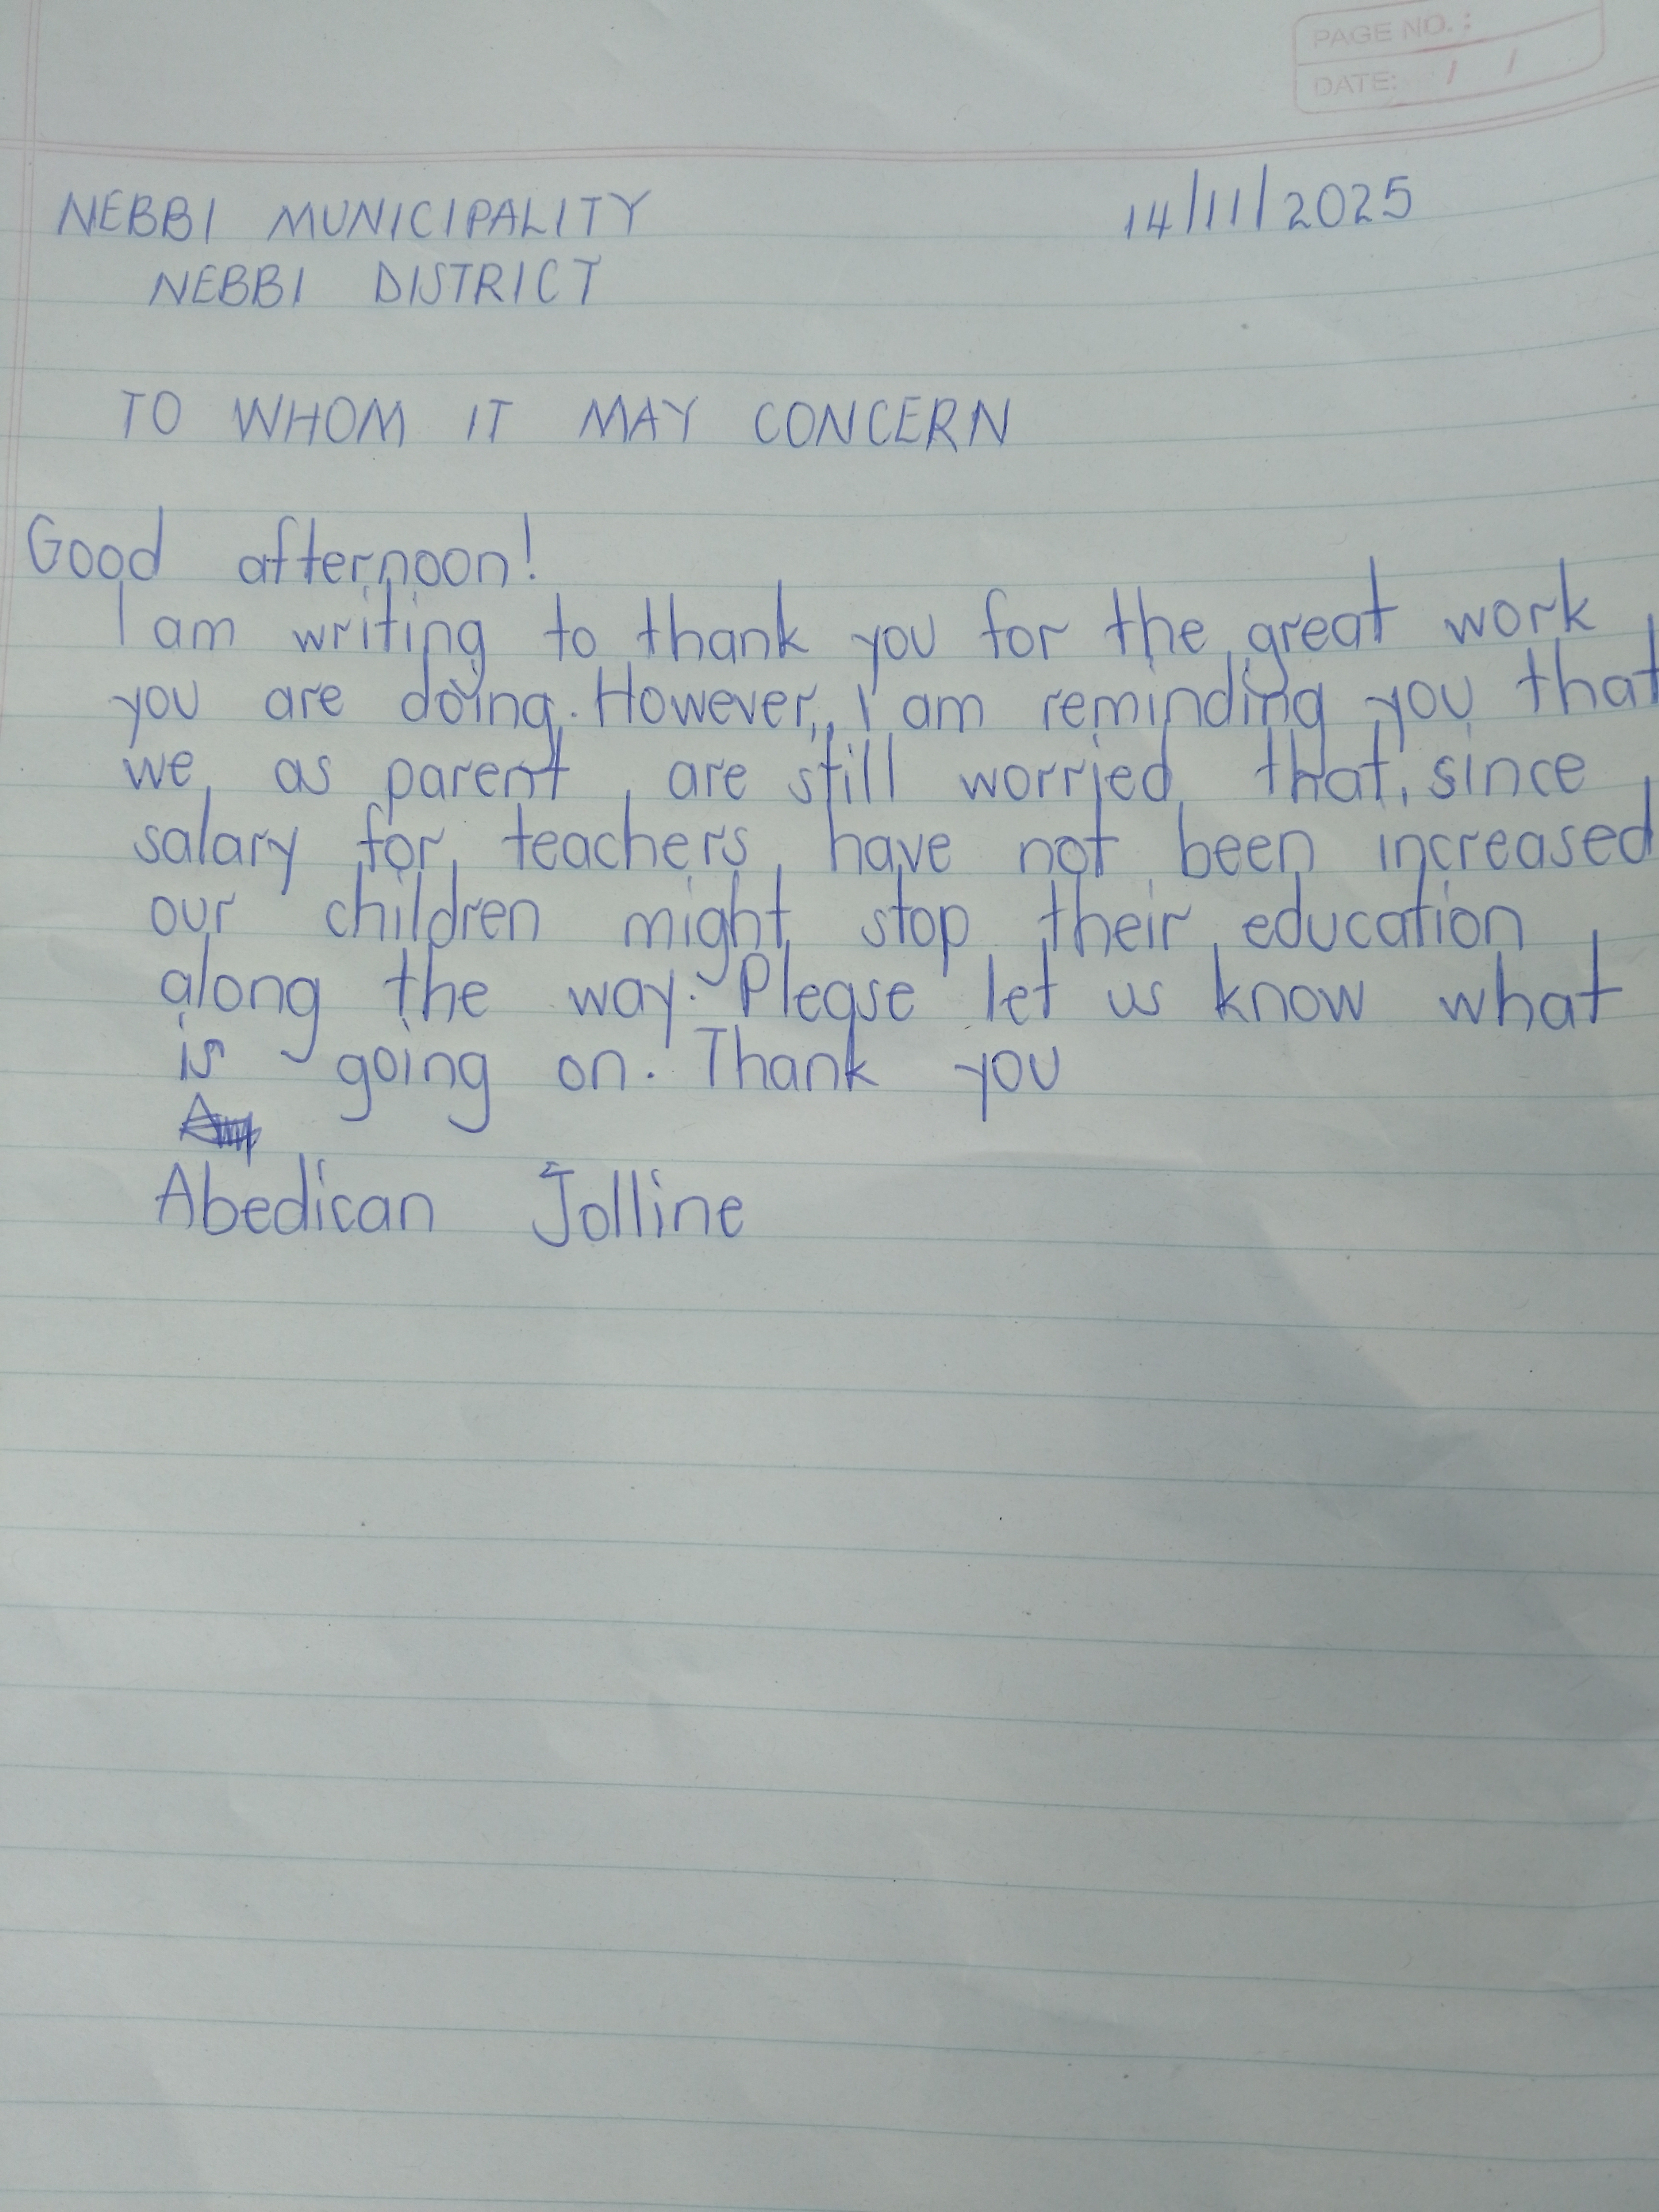 PAGE NO.:
DATE: / /
NEBBI MUNICIPALITY 14/11/2025
NEBBI DISTRICT
TO WHOM IT MAY CONCERN
Good afternoon!
I am writing to thank you for the great work
you are doing. However, I am reminding you that
we, as parent, are still worried that, since
salary for teachers have not been increased
our children might stop their education
along the way. Please let us know what
is going on. Thank you
Abedican Jolline